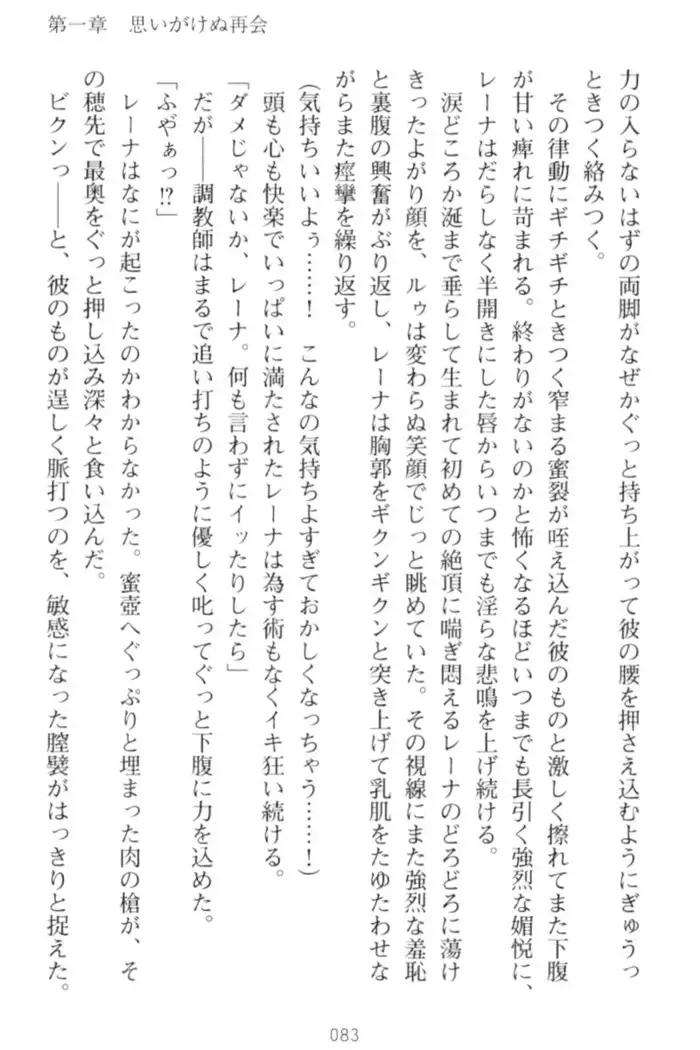 第一章　思いがけぬ再会
力の入らないはずの両脚がなぜかぐっと持ち上がって彼の腰を押さえ込むようにぎゅうっ
ときつく絡みつく。
　その律動にギチギチときつく窄まる蜜裂が咥え込んだ彼のものと激しく擦れてまた下腹
が甘い痺れに苛まれる。終わりがないのかと怖くなるほどいつまでも長引く強烈な媚悦に、
レーナはだらしなく半開きにした唇からいつまでも淫らな悲鳴を上げ続ける。
　涙どころか涎まで垂らして生まれて初めての絶頂に喘ぎ悶えるレーナのどろどろに蕩け
きったよがり顔を、ルゥは変わらぬ笑顔でじっと眺めていた。その視線にまた強烈な羞恥
と裏腹の興奮がぶり返し、レーナは胸郭をギクンギクンと突き上げて乳肌をたゆたわせな
がらまた痙攣を繰り返す。
（気持ちいいよぅ……！　こんなの気持ちよすぎておかしくなっちゃう……！）
　頭も心も快楽でいっぱいに満たされたレーナは為す術もなくイキ狂い続ける。
「ダメじゃないか、レーナ。何も言わずにイッたりしたら」
　だが――調教師はまるで追い打ちのように優しく叱ってぐっと下腹に力を込めた。
「ふやぁっ!?」
　レーナはなにが起こったのかわからなかった。蜜壺へぐっぷりと埋まった肉の槍が、そ
の穂先で最奥をぐっと押し込み深々と食い込んだ。
　ビクンっ――と、彼のものが逞しく脈打つのを、敏感になった膣襞がはっきりと捉えた。
083